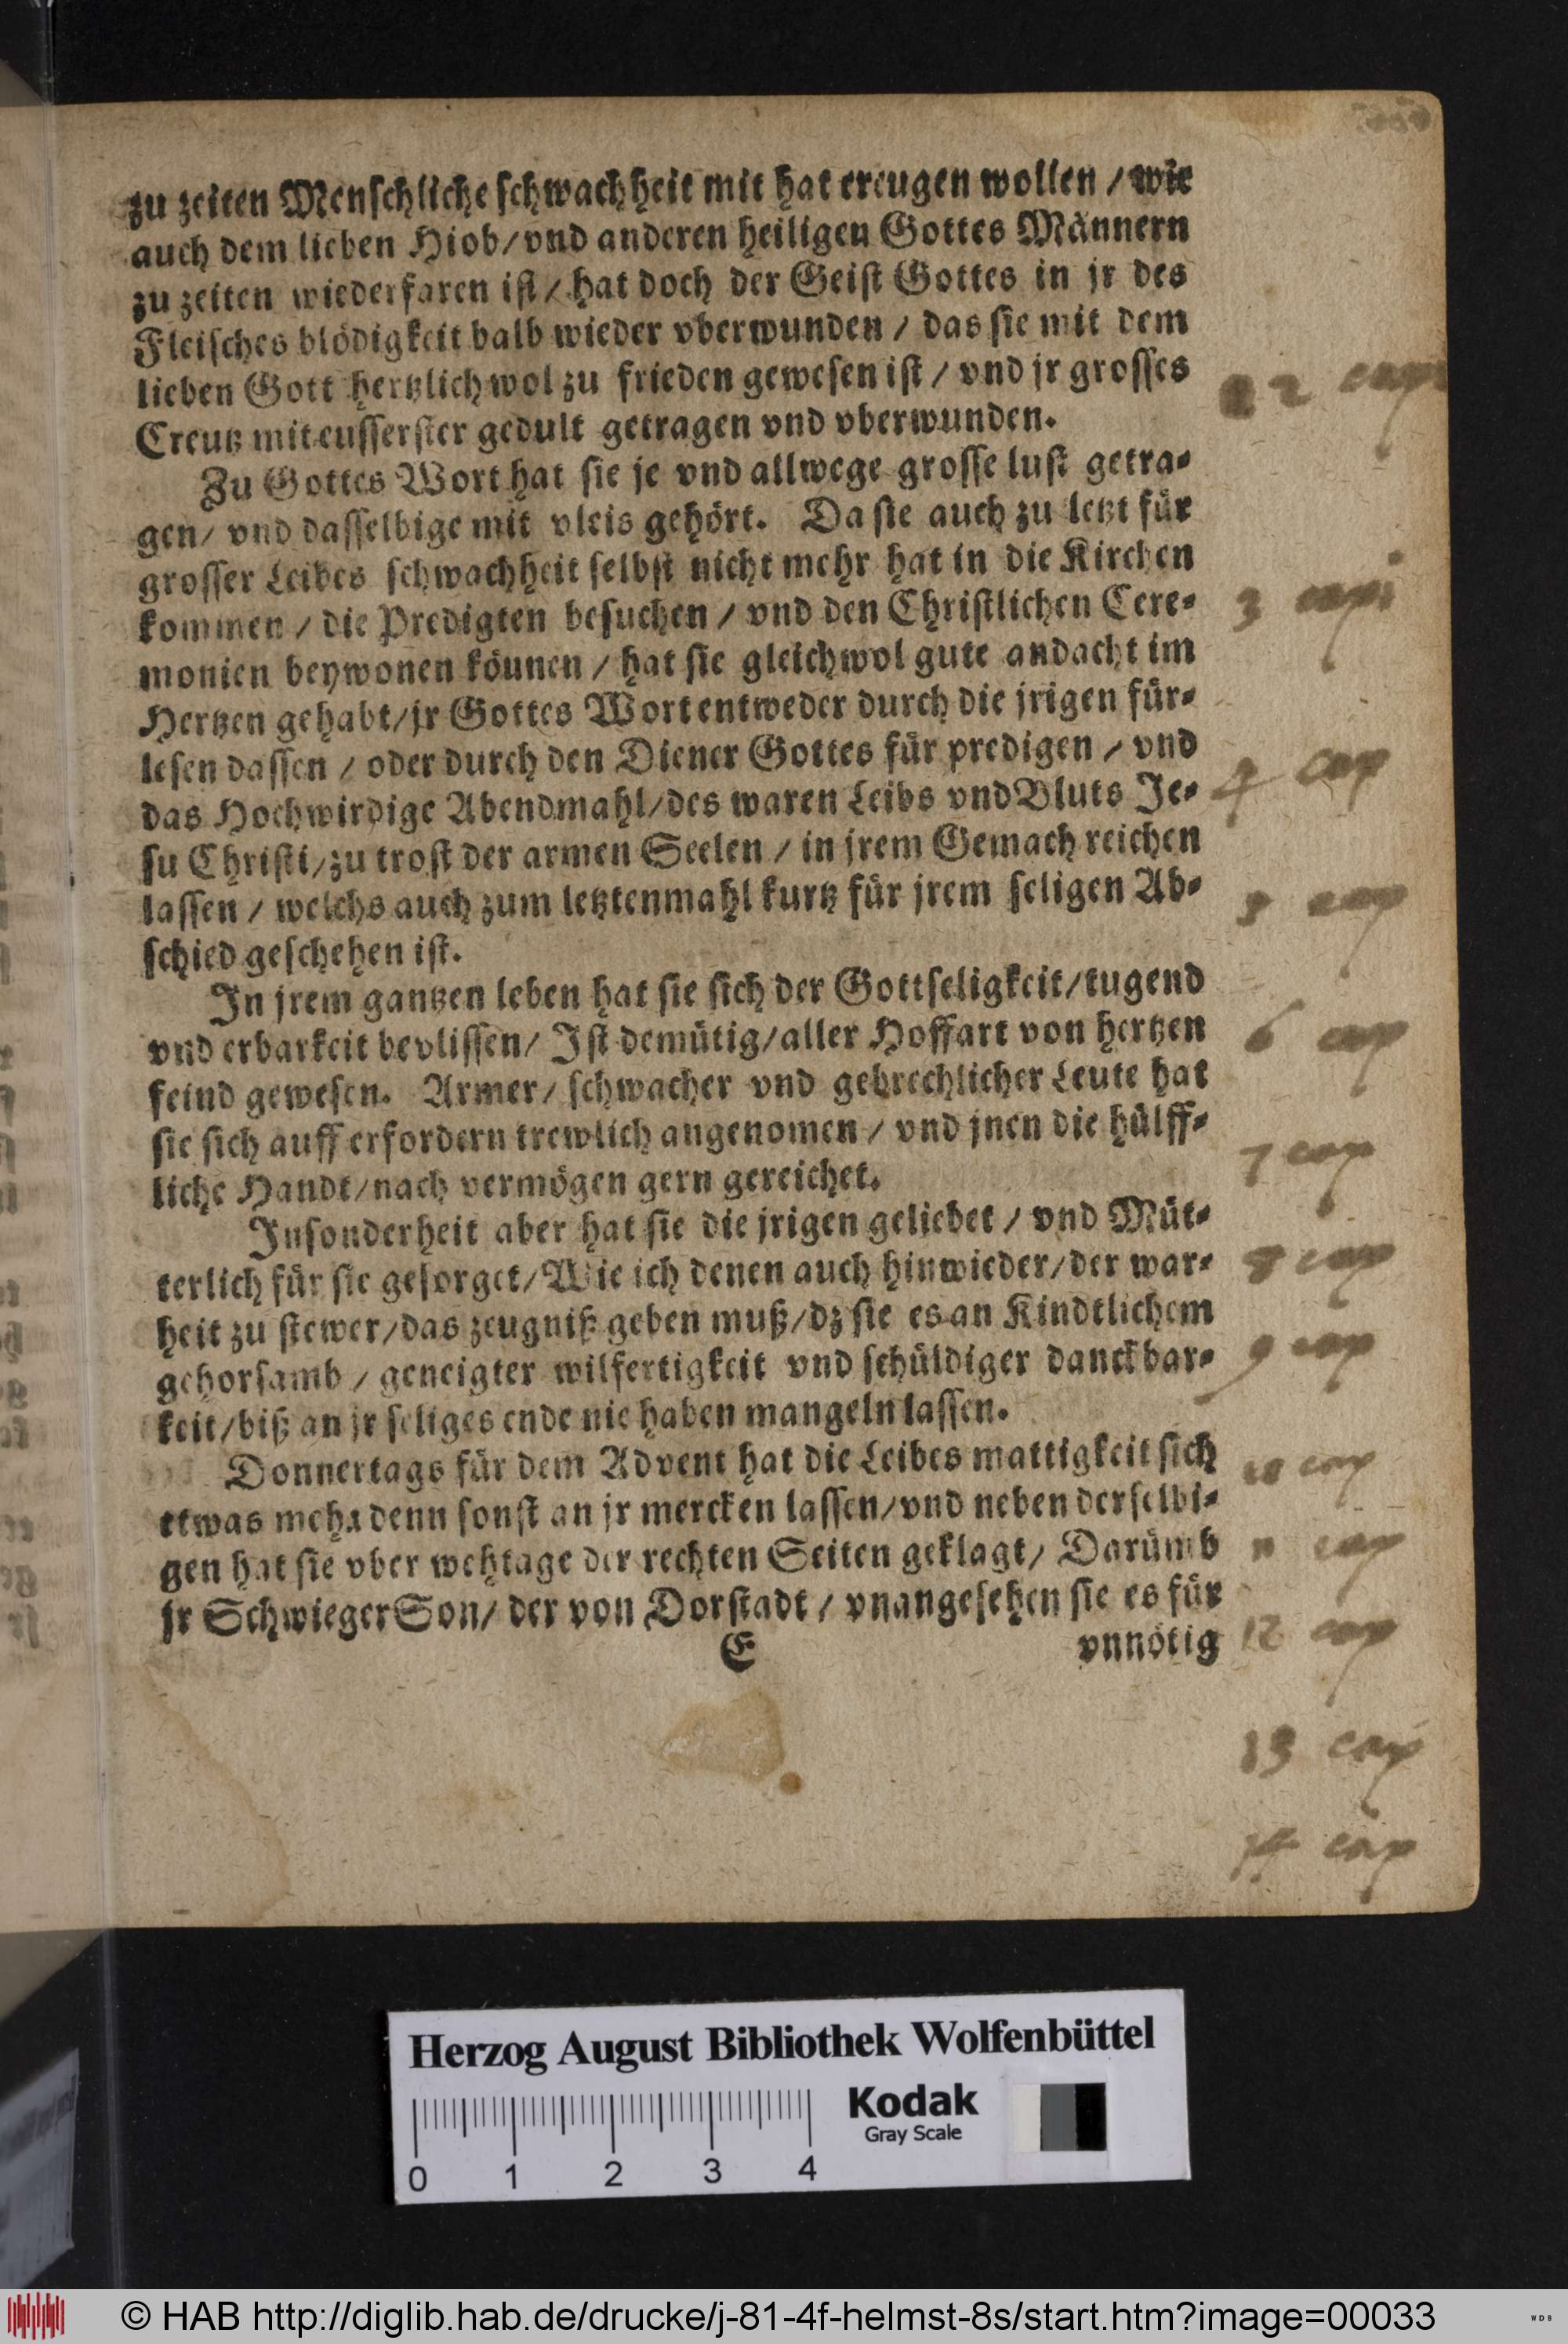 zu zeiten Menschliche schwachheit mit hat ereugen wollen / wie
auch dem lieben Hiob/vnd anderen heiligen Gottes Männern
zu zeiten wiederfaren ist / hat doch der Geist Gottes in jr des
Fleisches blödigkeit balb wieder vberwunden / das sie mit dem
lieben Gott hertzlich wol zu frieden gewesen ist / vnd jr grosses
Creutz mit eusserster gedult getragen vnd vberwunden.
Zu Gottes Wort hat sie je vnd allwege grosse lust getra-
gen/ vnd dasselbige mit vleis gehört. Da sie auch zu letzt für
grosser Leibes schwachheit selbst nicht mehr hat in die Kirchen
kommen / die Predigten besuchen / vnd den Christlichen Cere-
monien beywonen köunen / hat sie gleichwol gute andacht im
Hertzen gehabt/jr Gottes Wort entweder durch die jrigen für-
lesen dassen / oder durch den Diener Gottes für predigen / vnd
das Hochwirdige Abendmahl/des waren Leibs vnd Bluts Je-
su Christi/zu trost der armen Seelen / in jrem Gemach reichen
lassen / welchs auch zum letztenmahl kurtz für jrem seligen Ab-
schied geschehen ist.
In jrem gantzen leben hat sie sich der Gottseligkeit/tugend
vnd erbarkeit bevlissen/ Ist demütig/aller Hoffart von hertzen
feind gewesen. Armer/ schwacher vnd gebrechlicher Leute hat
sie sich auff erfordern trewlich angenomen / vnd jnen die hülff-
liche Handt/nach vermögen gern gereichet.
Insonderheit aber hat sie die jrigen geliebet / vnd Müt-
terlich für sie gesorget/Wie ich denen auch hinwieder/der war-
heit zu stewer/das zeugniß geben muß/dz sie es an Kindtlichem
gehorsamb / geneigter wilfertigkeit vnd schüldiger danckbar-
keit/biß an jr seliges ende nie haben mangeln lassen.
Donnertags für dem Advent hat die Leibes mattigkeit sich
etwas mehr denn sonst an jr mercken lassen/vnd neben derselbi-
gen hat sie vber wehtage der rechten Seiten geklagt/ Darümb
jr SchwiegerSon/ der von Dorstadt / vnangesehen sie es für
E vnnötig
2 cap
3 capi
4 cap
cap
6 cap
7 cap
8 cap
9 cap
10 cap
11 cap
12 cap
13 cap
14 cap
Herzog August Bibliothek Wolfenbüttel
Kodak
Gray Scale
0 1 2 3 4
© HAB http://diglib.hab.de/drucke/j-81-4f-helmst-8s/start.htm?image=00033
WDB